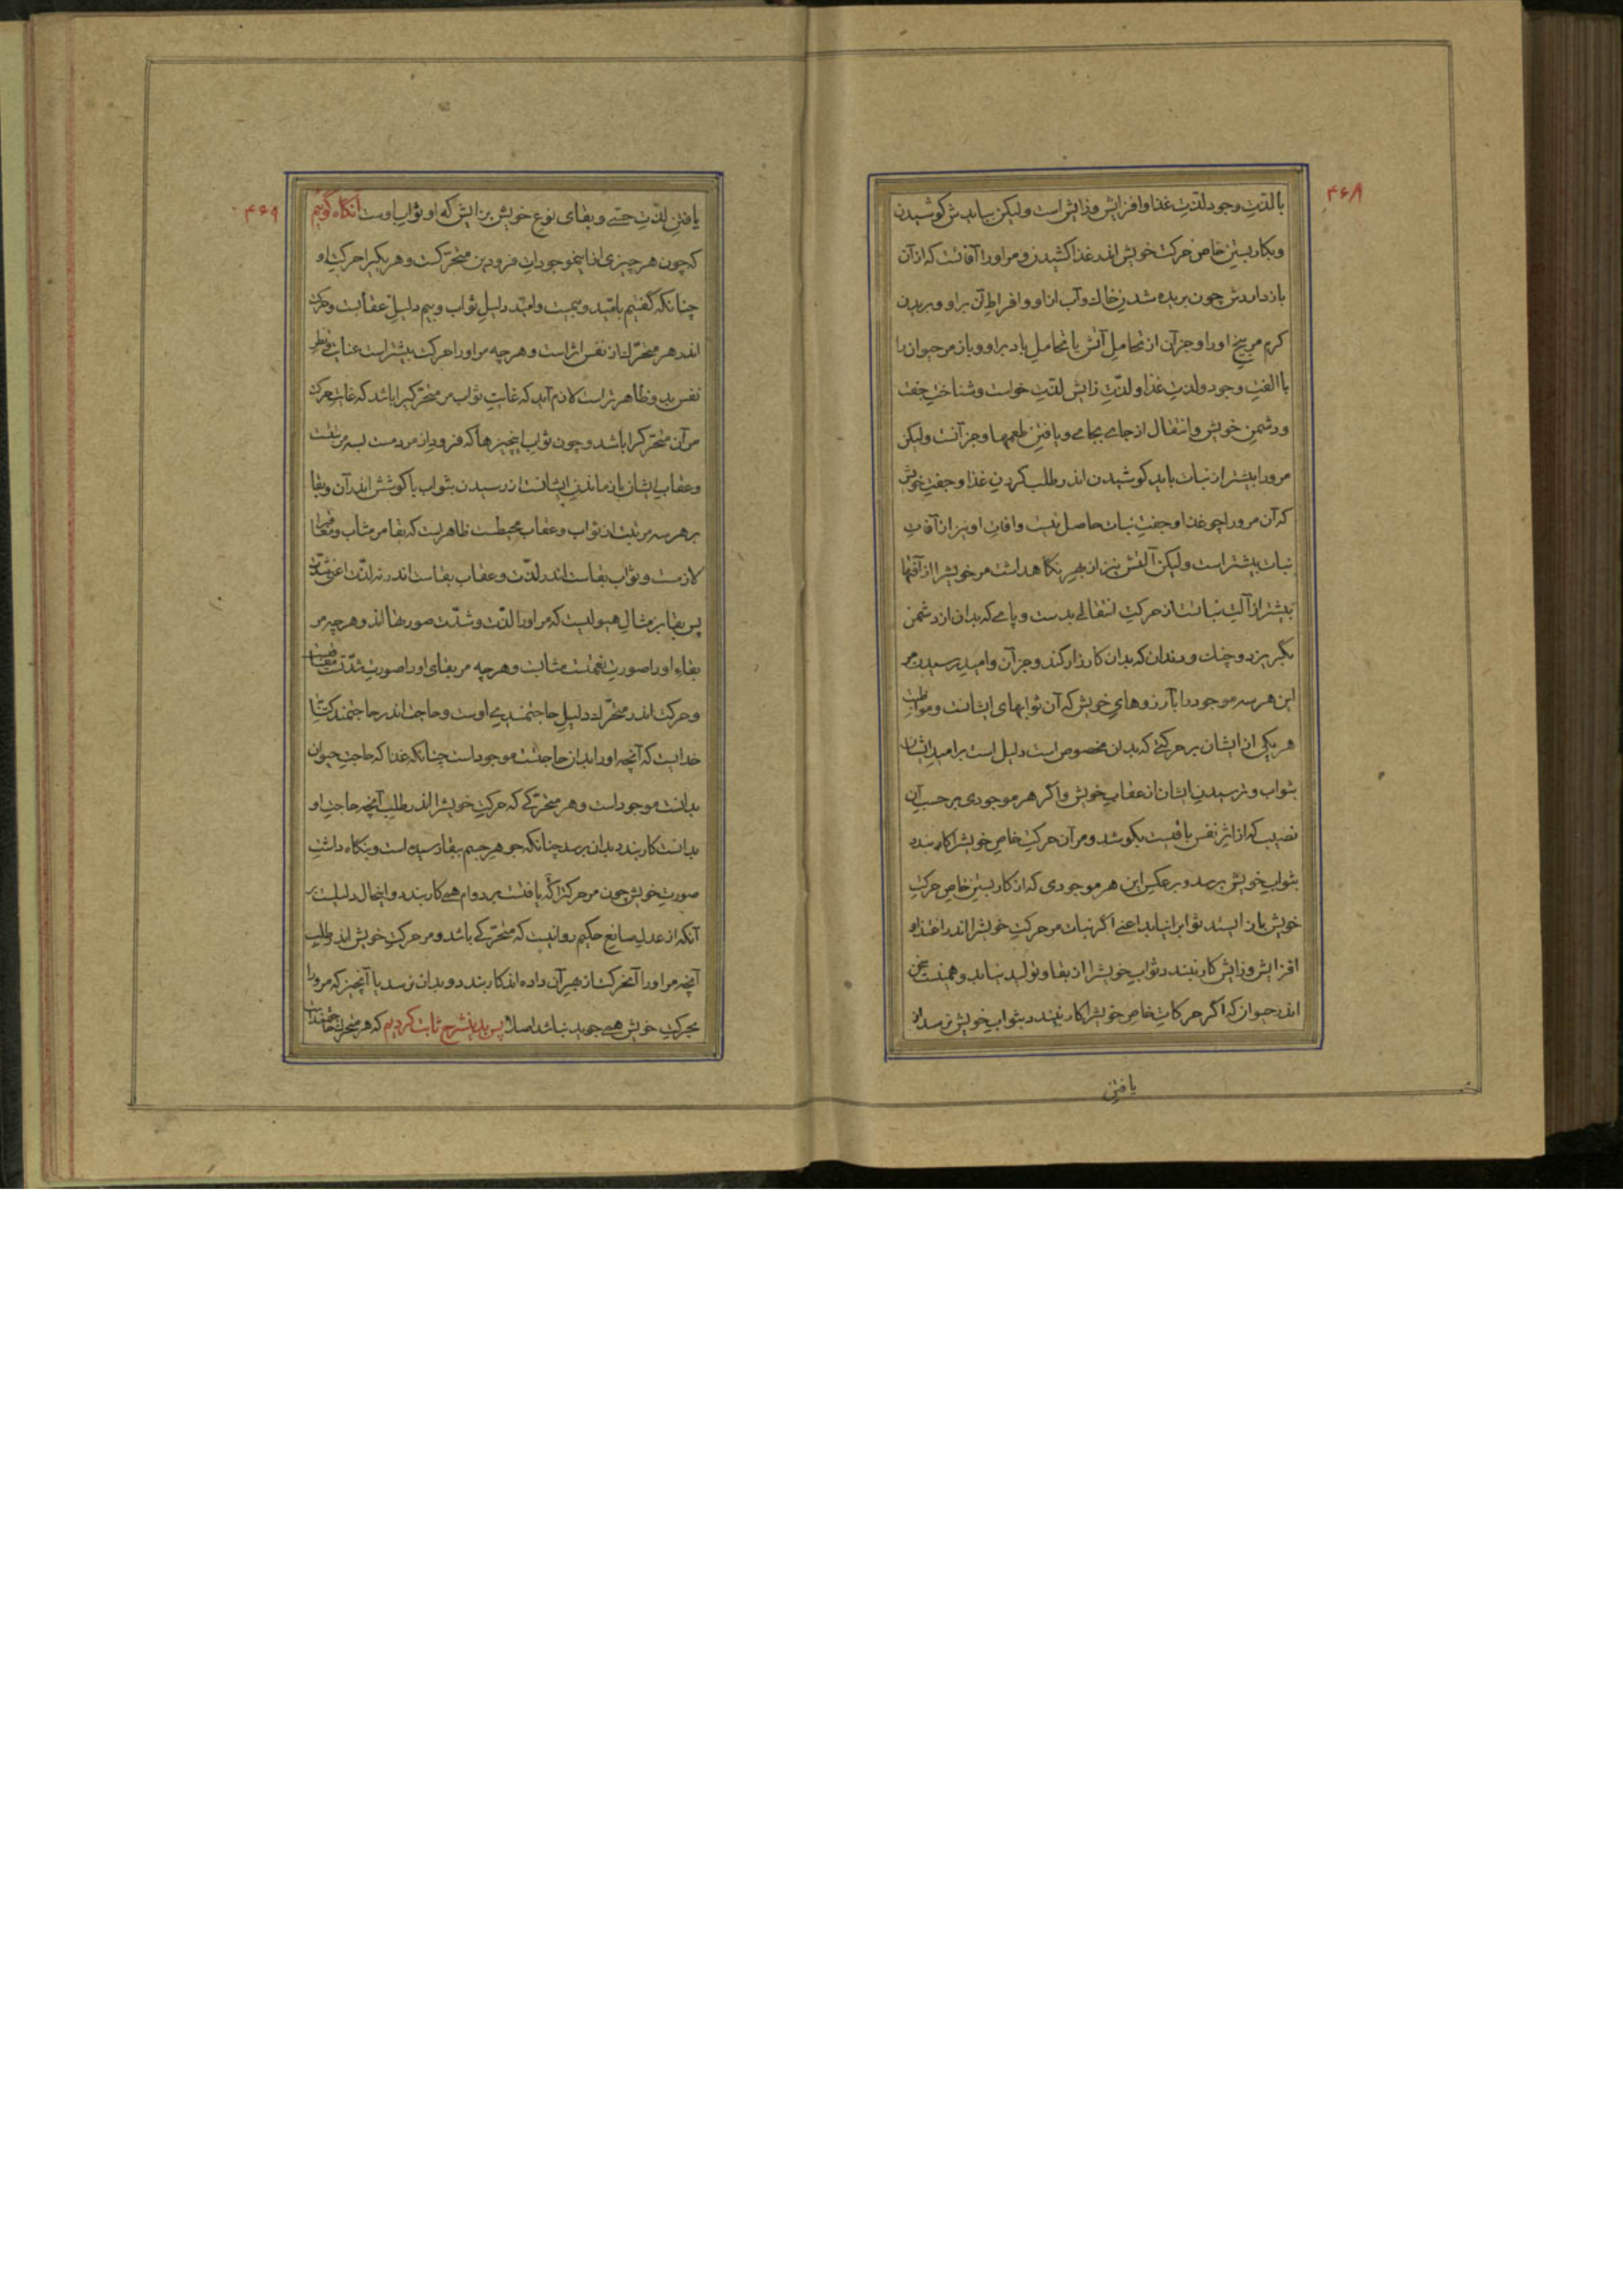 ۴۶۸
با لذّتِ وجود لذّتِ غذا و افزایش و زایش است ولیکن بباید ش کوشیدن
و بکار بستنِ خاص حرکت خویش اندر غذا کشیدن و مر اورا آفاتست که از آن
باز داردش چون بریده شدنِ خاك و آب از او و افراطِ آن بر او و بریدن
کرم مر بیخ اورا و جز آن از تحاملِ آتش یا تحاملِ باد بر او و باز مر حیوان را
با الفتِ وجود و لذتِ غذا و لذّتِ زایش لذّتِ خواست و شناختِ جفت
و دشمنِ خویش و انتقال از جاے بجاے و یافتنِ طعمها و جز آنست ولیکن
مرورا بیشتر از نبات باید کوشیدن اندر طلب کردنِ غذا و جفتِ خویش
که آن مرورا چو غذا و جفتِ نبات حاصل نیست و افاتِ او نیز از آفاتِ
نبات بیشتر است ولیکن آلتش نیز از بهرِ نگاهداشت مر خویشرا از آفتها
بیشتر از آلتِ نباتست از حرکتِ انتقالے بدست و پاے که بدان از دشمن
بگریزد و چنك و دندان که بدان کارزار کند و جز آن و امیدِ رسیدن مر
این هر سه موجود را بآرزوهایِ خویش که آن ثوابهای ایشانست و مواظبتِ
هر یکی از ایشان بر حرکتے که بدان مخصوص است دلیل است بر امیدِ ایشان
بثواب و ترسیدنِ ایشان از عقابِ خویش و اگر هر موجودی بر حسبِ آن
نصیب که از اثرِ نفس یافتست بکوشد و مر آن حرکتِ خاصِ خویشرا کار بندد
بثوابِ خویش برسد و بر عکسِ این هر موجودی که از کار بستنِ خاصِ حرکتِ
خویش باز ایستد ثوابرا نیابد اعنے اگر نبات مر حرکتِ خویشرا اندر اغتذاء
افزایش و زایش کار نبندد ثوابِ خویشرا از بقا و تولید نیابد و همینست سخن
اندر حیوان که اگر حرکاتِ خاصِ خویشرا کار نبندد بثوابِ خویش نرسد از
یافتنِ
۴۶۹
یافتنِ لذّتِ حسّے و بقای نوعِ خویش بزایش که او ثوابِ اوست آنگاه گوئیم
که چون هر چیزی از اینموجوداتِ فرودین متحرّکست و هر یکیرا حرکتِ او
چنانکه گفتیم بامّید و بیمست و امّید دلیلِ ثواب و بیم دلیلِ عقابست و حرکت
اندر هر متحرّك از نفس اثر است و هر چه مر اورا حرکت بیشتر است عنایتِ
نفس بدو ظاهر تر است لازم آید که غایتِ ثواب مر متحرّکیرا باشد که غایتِ حرکت
مر آن متحرّکرا باشد و چون ثوابِ اینچیزها که فرود از مردمست بسه مرتبتست
و عقابِ ایشان باز ماندنِ ایشانست از رسیدن بثواب با کوشش اندر آن و بقا
بر هر سه مرتبت از ثواب و عقاب محیطست ظاهر است که بقا مر مثاب و معاقبرا
لازمست و ثواب بقاست اندر لذّت و عقاب بقاست اندر نه لذّت اعنی شدّت
پس بقا بر مثالِ هیولیست که مر اورا لذّت و شدّت صورتها اند و هر چه مر
بقاءِ اورا صورتِ نعمتست مثابست و هر چه مر بقای اورا صورتِ شدّتست معاقبست
و حرکت اندر متحرّك دلیلِ حاجتمندےِ اوست و حاجت اندر حاجتمند
خدایست که آنچه اورا بدان حاجتست موجود است چنانکه غذا که حاجتِ حیوان
بدانست موجود است و هر متحرّکے که حرکتِ خویشرا اندر طلبِ آنچه حاجتِ او
بدانست کار بندد بدان برسد چنانکه جوهرِ جسم ببقا رسیده است و بنگاه داشتِ
صورتِ خویش چون مر حرکتراکه یافتست بر دوام همے کار بندد و اینحال دلیلست بر
آنکه از عدلِ صانعِ حکیم روا نیست که متحرّکے باشد و مر حرکتِ خویش اندر طلبِ
آنچه مر اورا آنحرکت از بهرِ آن داده اند کار بندد و بدان نرسد یا آنچیز که مرورا
بحرکتِ خویش همے جوید نباشد اصلا پس بدینشرح ثابت کردیم که هر متحرّك حاجتمند است